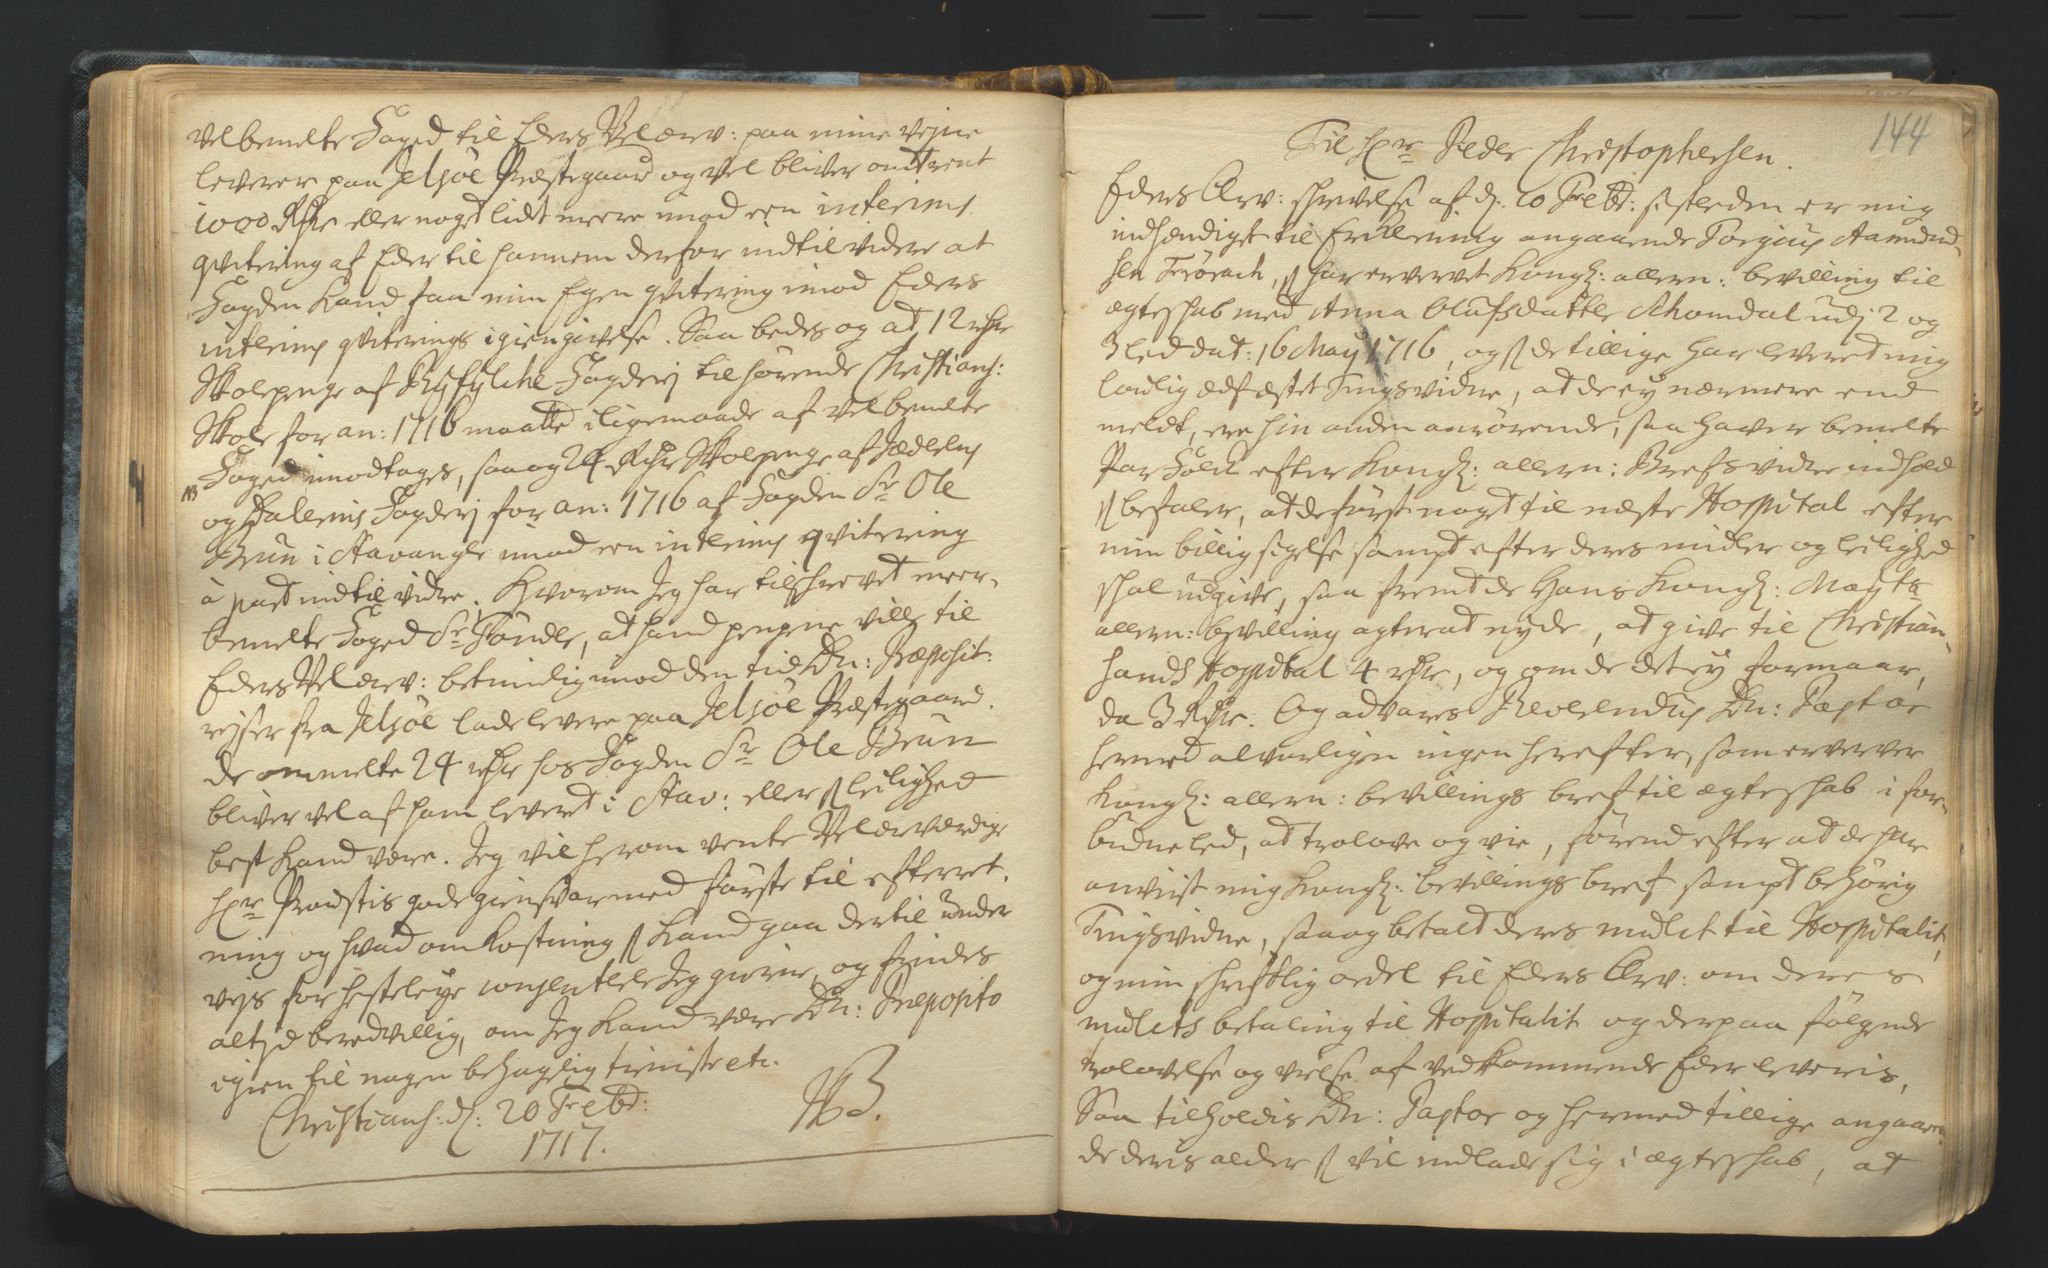 velbemelte Foged til Eders Velærv: paa mine vejne
leverer paa Jelsøe Præstegaard og vel bliver omtrent
1000 Rdr eller noget lidt meere imod een interims
qvitering af Eder til hannem derfor indtil videre at
Fogden kand faa min Egen qvitering imod Eders
interims qviterings igiengivelse. Saa bedes og at 12 rdr
Skolepenge af Ryfylche Fogderj tilhørende Christians:
Skole for an: 1716 maatte iligemaade af velbemelte
Foged imodtages, saa og 24 Rdr Skolepenge af Jæderens
NB
og Dalernis Fogderj for an: 1716 af Fogden Sr Ole
Brun i Stavanger imod een interims qvitering
à part indtil videre. Hvorom Jeg har tilskrevet meer-
bemelte Foged Sr, at hand pengene ville til
Eders Velærv: betimelig imod den tid Dn: Præposit:
rejser fra Jelsøe lade levere paa Jelsøe Præstegaard.
De ommelte 24 rdr hos Fogden Sr Ole Brun
bliver vel af ham leveret i Stav: eller leilighed
best kand være. Jeg vil herom vente Velærværdige
Hr Provstis gode giensvar med første til efterret-
ning og hvad omkostning kand gaa dertil under
vejs for hesteleye consentere Jeg gierne, og findes
altid beredvillig, om Jeg kand være Dn: Præposito
igien til nogen behagelig tieniste etc.
Christians: d: 20 Febr:
1717.
144
Til Hr Peder Christophersen.
Eders Ærv: skrivelse af d. 10 Febr: sistleden er mig
indhændiget til Erklering angaaende Torgius Aamund-
sen, har ervervet Kongl: allern: bevilling til
ægteskab med Anna Olufsdatter udj 2 og
3 led dat: 16 May 1716, og de tillige har leveret mig
lovlig ædfæstet Tingsvidne, at de ey nærmere end
meldt, ere hin anden anrørende, saa haver bemelte
Par Folck efter Kongl: allern: Brefs videre indhold
befaler, at de først noget til næste Hospital efter
min billig sigelse sampt efter deres midler og leilighed
skal udgive, saa fremt de Hans Kongl: Mayts
allern: bevilling agter at nyde, at give til Christian-
sands Hospital 4 rdr, og om de det ey formaar,
da 3 Rdr. Og advares Reverendus Dn: Pastor
hermed alvorligen ingen herefter, som erverver
Kongl: allern: bevillings bref til ægteskab i for-
budne led, at trolove og vie, førend efter at de har
anviist mig Kongl: bevillings bref sampt behørig
Tingsvidne, saa og betalt deres mulct til Hospitalit,
og min skriftlig ordel til Eders Ærv: om deres
mulcts betaling til Hospitalit og derpaa følgende
trolovelse og vielse af vedkommende Eder leveris,
Saa tilholdis Dn: Pastor og hermed tillige angaaen-
de deris alder vil indlade sig i ægteskab, at